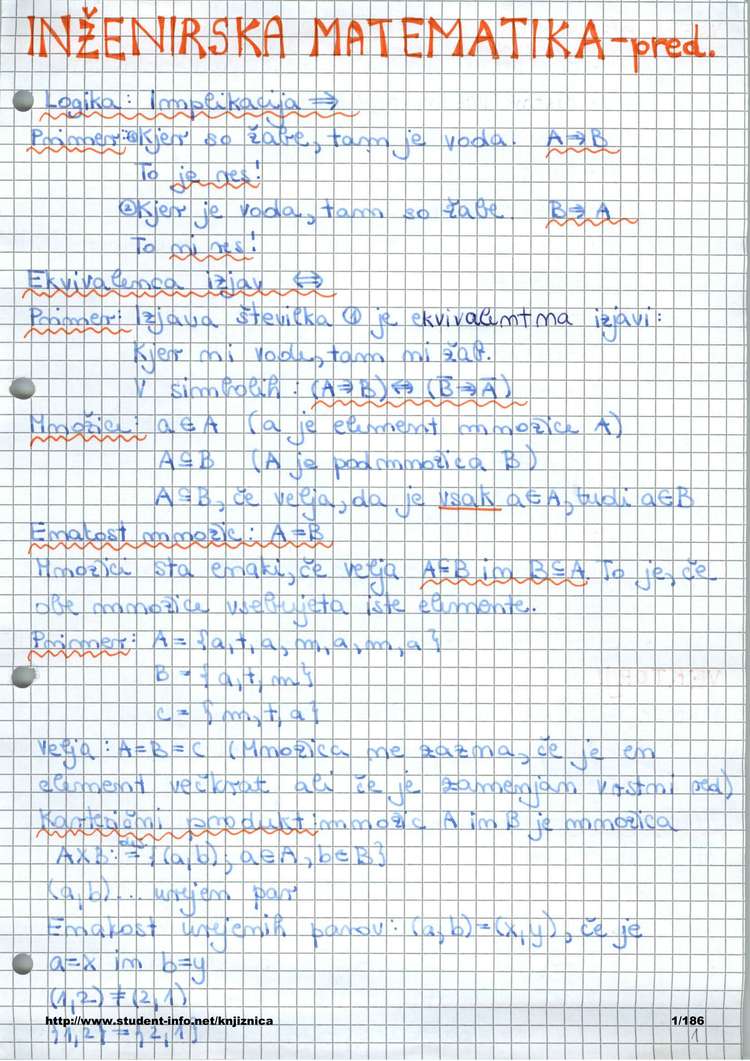 INŽENIRSKA MATEMATIKA-pred.
Logika: Implikacija ⇒
Primer: ① Kjer so žabe, tam je voda. A⇒B
To je res!
② Kjer je voda, tam so žabe. B⇒A
To ni res!
Ekvivalenca izjav ⇔
Primer: Izjava številka ① je ekvivalentna izjavi:
Kjer ni vode, tam ni žab.
V simbolih: (A⇒B)⇔(B̅⇒A̅)
Množice: a∈A (a je element množice A)
A⊆B (A je podmnožica B)
A⊆B, če velja, da je vsak a∈A, tudi a∈B
Enakost množic: A=B
Množici sta enaki, če velja A⊆B in B⊆A. To je, če
obe množice vsebujeta iste elemente.
Primer: A = {a, t, a, m, a, m, a}
B = {a, t, m}
C = {m, t, a}
Velja: A=B=C (Množica ne zazna, če je en
element večkrat ali če je zamenjan vrstni red)
Kartezični produkt množic A in B je množica
A×B := {(a,b); a∈A, b∈B}
def.
(a,b)... urejen par
Enakost urejenih parov: (a,b)=(x,y), če je
a=x in b=y
(1,2)≠(2,1)
{1,2}={2,1}
http://www.student-info.net/knjiznica
1/186
1